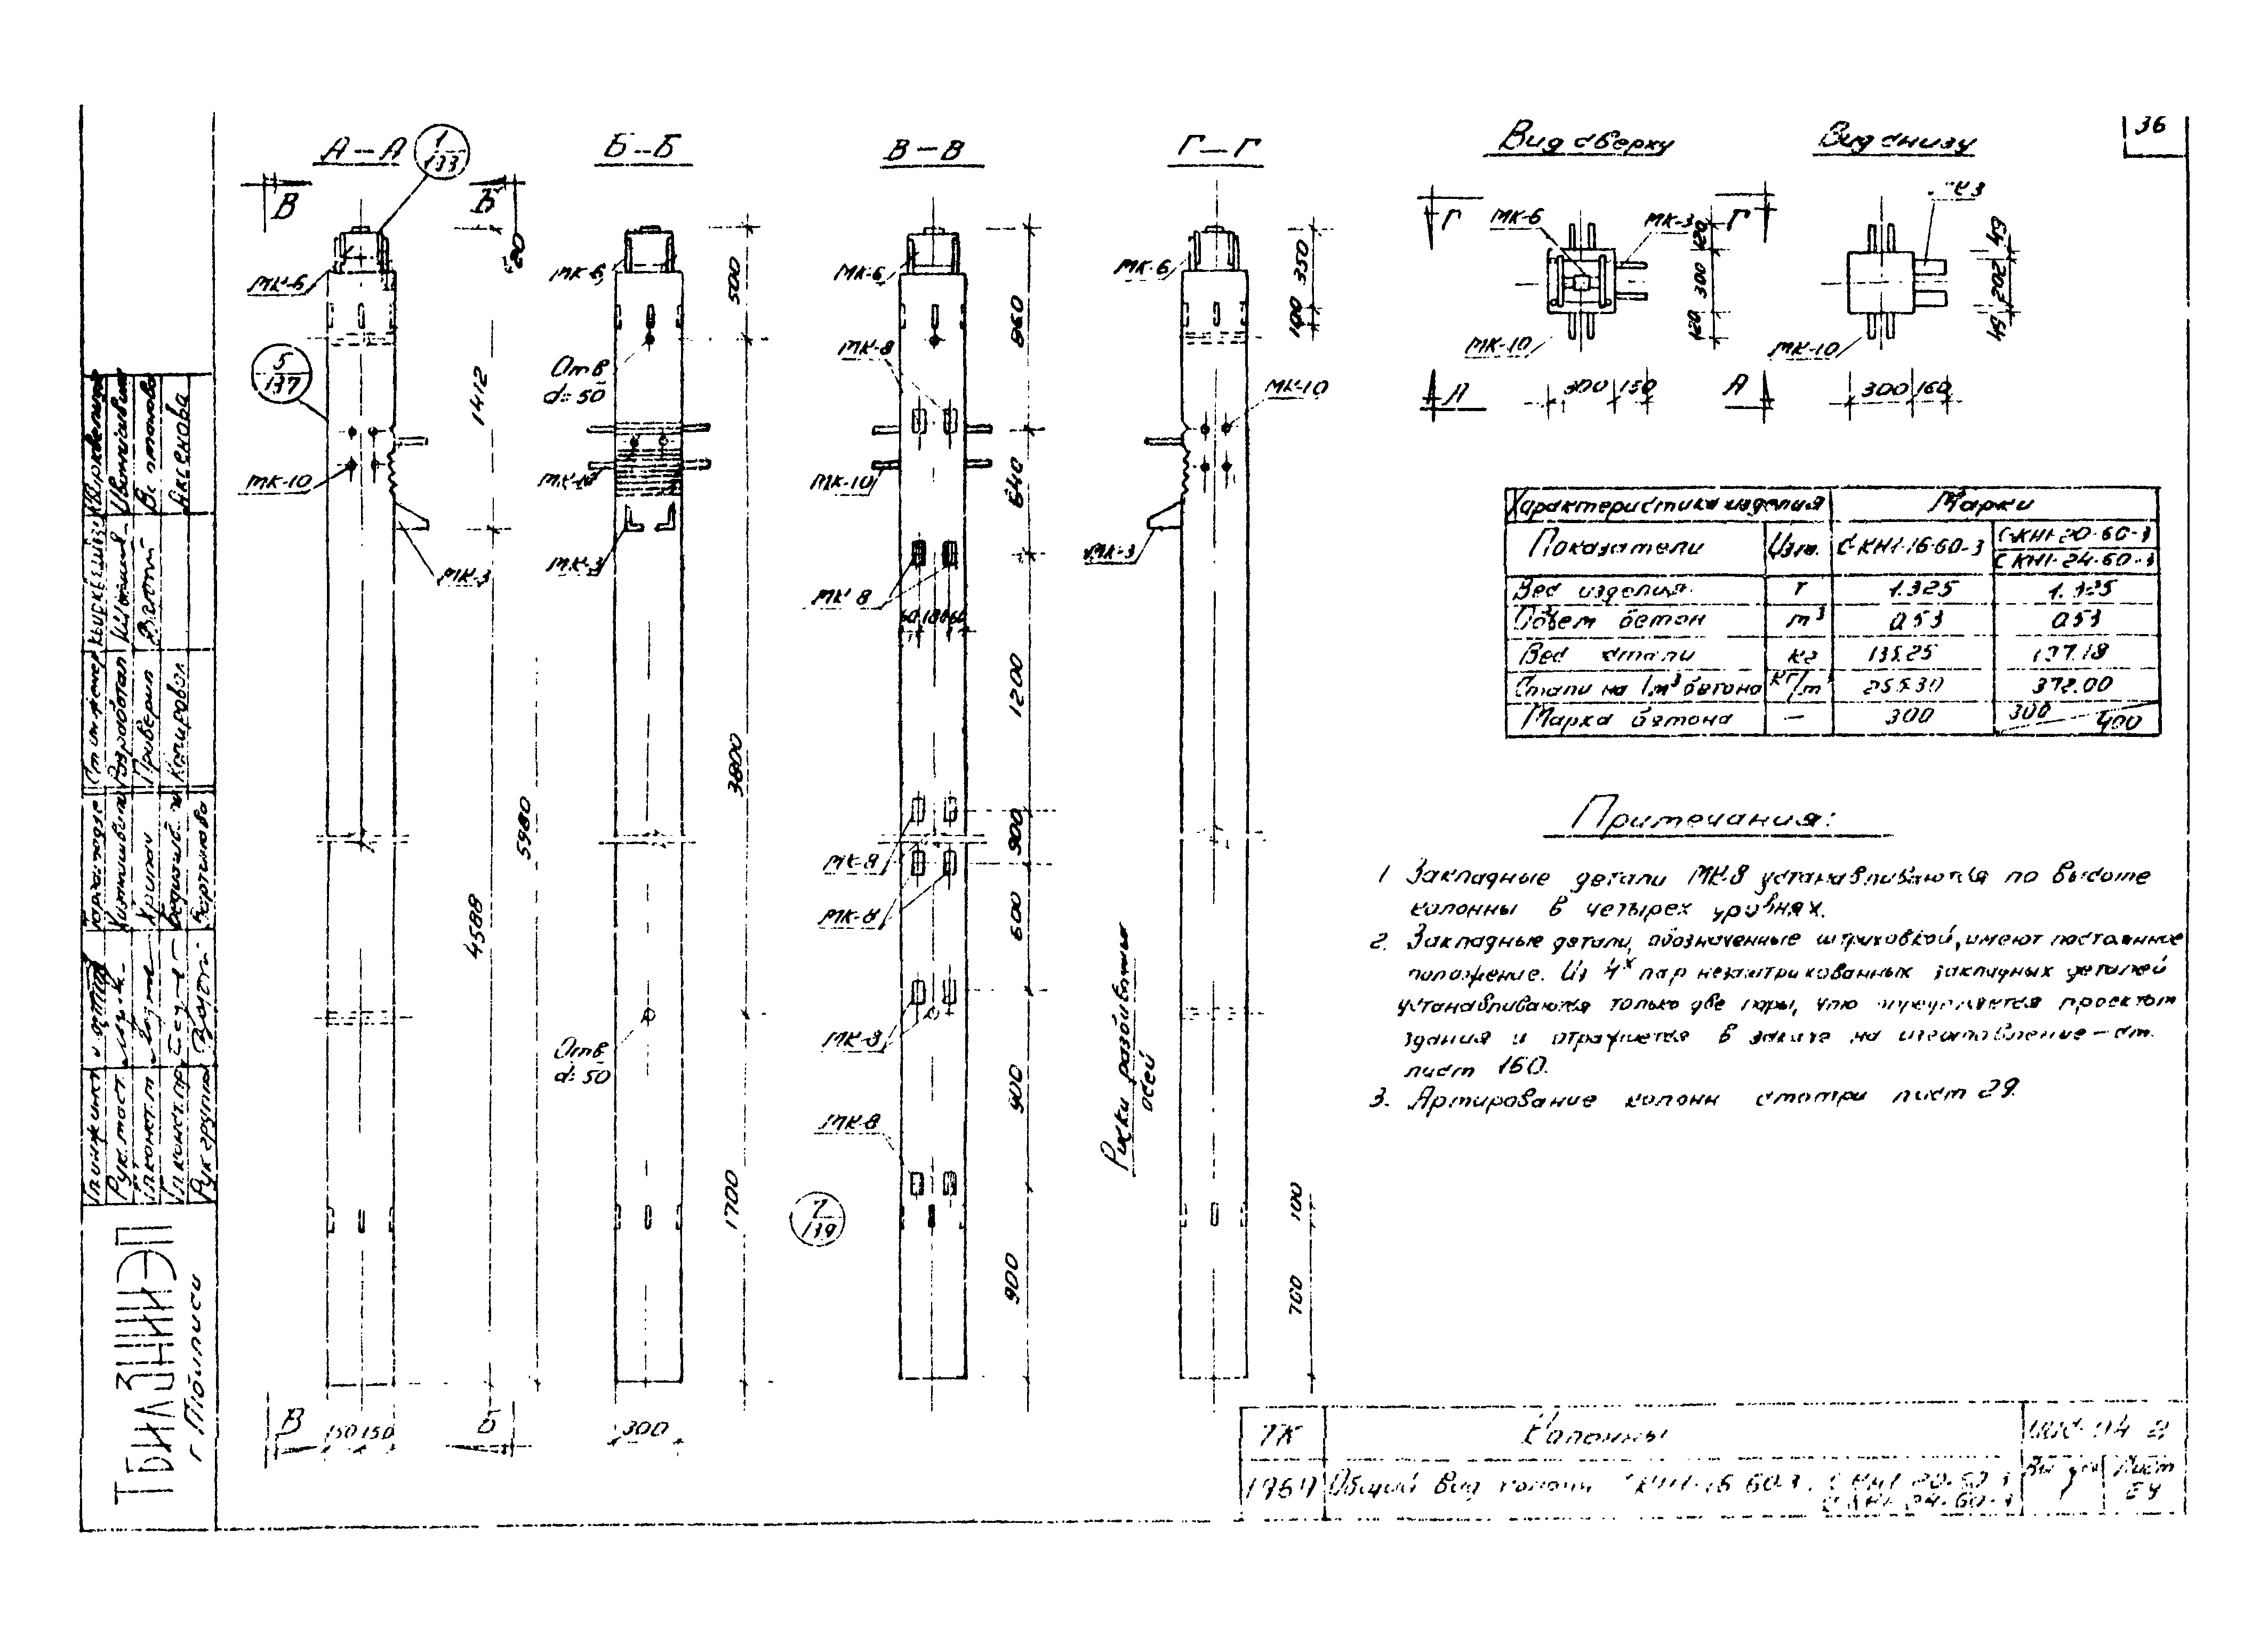 36
А–А
1
133
Б–Б
В–В
Г–Г
Вид сверху
Вид снизу
В
Б
20
Г
МК-6
МК-3
Г
МК-6
МК-6
МК-6
МК-6
500
860
350
100
120
300
120
49
202
49
МК-10
МК-10
5
137
Отв
d=50
МК-8
МК-10
А
300 150
А
300 160
1412
МК-10
МК-10
МК-10
640
МК-3
МК-3
МК-3
МК-8
60 180 60
Характеристика изделия
Марки
Показатели
Изм.
СКН1-16-60-3
СКН1-20-60-3
СКН1-24-60-3
Вес изделия
т
1.325
1.325
Объем бетон
м³
0.53
0.53
Вес стали
кг
135.25
197.18
Стали на 1м³ бетона
кг/м³
255.30
372.00
Марка бетона
—
300
300
400
1200
3800
5980
900
МК-8
МК-8
600
4588
МК-8
Отв
d=50
900
МК-8
Риски разбивочных
осей
1700
7
139
900
100
700
Примечания:
1 Закладные детали МК-8 устанавливаются по высоте
колонны в четырех уровнях.
2. Закладные детали, обозначенные штриховкой, имеют постоянное
положение. Из 4х пар незаштрихованных закладных деталей
устанавливаются только две пары, что определяется проектом
здания и отражается в заказе на изготовление – см.
лист 160.
3. Армирование колонн смотри лист 29.
В
150 150
Б
300
ТК
Колонны
Общий вид колонн СКН1-16-60-3, СКН1-20-60-3
СКН1-24-60-3
Лист
Разработал
Проверил
Копировал
Аксенова
Рук. маст.
Рук группы
ТБИЛЗНИИЭП
г Тбилиси